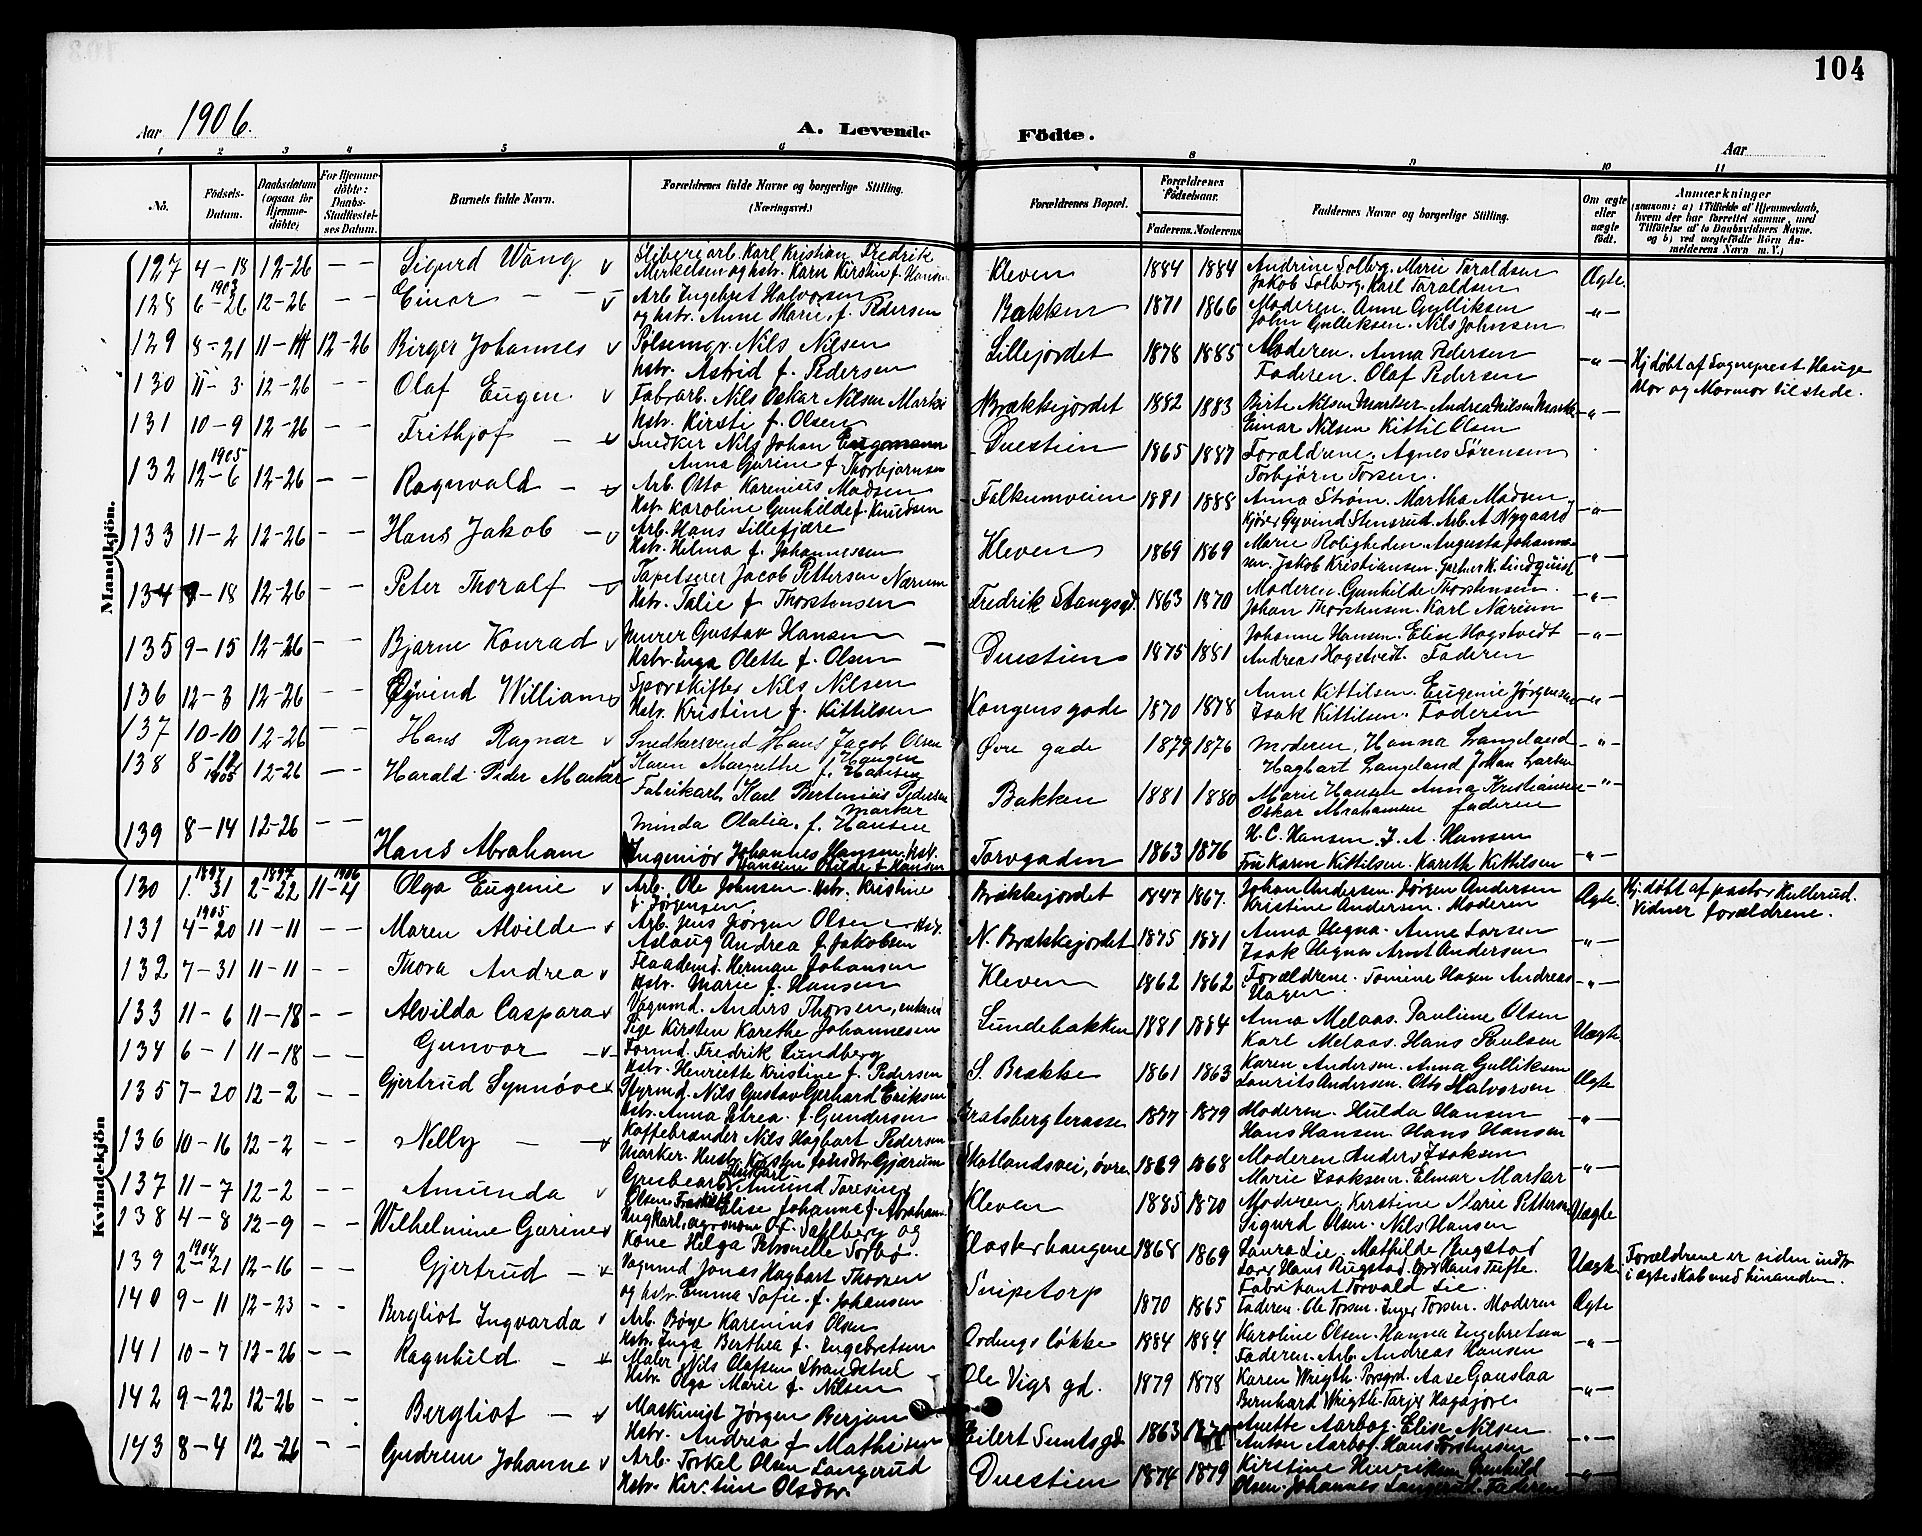 104
Aar 1906.
A. Levende
Födte.
Aar
1 2 3 4 5 6 8 9 10 11
No.
Födsels-Datum.
Daabsdatum (ogsaa for Hjemmedöbte)
For Hjemmedöbte: Daabs-Stadfæstelses Datum.
Barnets fulde Navn.
Forældrenes fulde Navne og borgerlige Stilling. (Næringsvei.)
Forældrenes Bopæl.
Forældrenes Födselsaar.
Faderens. Moderens.
Faddernes Navne og borgerlige Stilling.
Om ægte eller uægte födt.
Anmærkninger
Mandkjön.
127 4-18 12-26 — — Sigurd Wang Slibereiarb. Karl Kristian Fredrik Merkelsen og hstr. Karn Kirstine f. Hansen Kleven 1884 1884 Andrine Solbrg. Marie Taraldsen Jakob Solberg. Karl Taraldsen Ægte.
128 1903 6-26 12-26 — — Einar — Arb. Ingebret Halvorsen og hstr. Anne Marie f. Pedersen Bakken 1871 1866 Moderen. Anne Gulliksen John Gulliksen. Nils Johnsen —"—
129 8-21 11-14 12-26 Birger Johannes Pølsemgr. Nils Nilsen hstr. Astrid f. Pedersen Lillejordet 1878 1885 Moderen. Anna Pedersen Faderen. Olaf Pedersen —"— Hj. døbt af Sogneprest Hauge Mor og Mormor til stede.
130 11-3 12-26 — — Olaf Eugen Fabrarb. Nils Oskar Nilsen Marker Hstr. Kirsti f. Olsen N. Brækkejordet 1882 1883 Birte Nilsen Marker Andrea Nilsen Marker Einar Nilsen Kittil Olsen —"—
131 10-9 12-26 Frithjof — Snedker Nils Johan Engemann Anna Gurine f. Thorbjørnsen Duestien 1865 1887 Forældrene. Agnes Sørensen Torbjørn Torsen.
132 1905 12-6 12-26 — — Ragnvald — Arb. Otto Karenius Madsen Hstr. Karoline Gunhilde f. Knudsen Falkumveien 1881 1888 Anna Strøm. Martha Madsen, Kjører Øyvind Stensrud. Arb. A. Nygaard —"—
133 11-2 12-26 — — Hans Jakob — Arb. Hans Lillefjære Hstr. Helma f. Johannessen Kleven 1869 1869 Marie Roligheden Augusta Johannesen. Jakob Kristiansen. Gartner K. Lindquist —"—
134 9-18 12-26 — — Peter Thoralf — Tapetserer Jacob Pettersen Nærum Hstr. Talie f. Thorstensen Fredrik Stangsgd. 1863 1870 Moderen. Gunhilde Thorstensen. Johan Thorstensen. Karl Nærum —"—
135 9-15 12-26 — — Bjarne Konrad Murer Gustav Hansen Hstr. Inga Olette f. Olsen Duestien 1875 1881 Johanne Hansen. Elise Hogstvedt Andreas Hogstvedt. Faderen —"—
136 12-3 12-26 — — Øyvind William Sporskifter Nils Nilsen Hstr. Kristine f. Kittilsen Kongensgade 1870 1878 Anne Kittilsen. Eugenie Jørgensen Isak Kittilsen. Faderen —"—
137 10-10 12-26 — — Hans Ragnar Snedkersvend Hans Jacob Olsen Karen Margrethe f. Haugen Øvre gade 1879 1876 Moderen, Hanna Langeland Hagbart Langeland Johan Larsen —"—
138 8-12 1905 12-26 — — Harald Peder Marker Fabrikarb. Karl Bertenius Pedersen Marker Minda Olalia. f. Hansen Bakken 1881 1880 Marie Hansen Anna Kristiansen Oskar Abrahamsen faderen —"—
139 8-14 12-26 — — Hans Abraham Ingeniør Johannes Hansen, Hstr. Hansine Hilde f. Hansen Torvgaden 1863 1876 H. C. Hansen. J. A. Hansen Fru Karen Kittilsen. Kareth Kittilsen —"—
Kvindekjön
130 1897 1. 31 1897 2-22 1906 11-4 Olga Eugenie Arb. Ole Johnsen. Hstr. Kristine f. Jørgensen Brækkejordet 1847 1867. Johan Andersen. Jørgen Andersen Kristine Andersen. Moderen Ægte. Hj. døbt af pastor Kullerud. Vidner forældrene.
131 1905 4-20 11-11 — — Maren Alvilde Arb. Jens Jørgen Olsen Hstr. Aslaug Andrea f. Jakobsen N. Brækkejordet 1875 1881 Anna Hegna. Anne Larsen Isak Hegna Arnt Andersen —"—
132 7-31 11-11 — — Thora Andrea Flaademd. Herman Johansen Hstr. Marie f. Hansen Kleven 1862 1862 Forældrene. Tomine Hagen Andreas Hagen —"—
133 11-6 11-18 — — Alvilda Caspara Vognmd. Anders Thorsen, enkem. Pige Kirsten Karethe Johannesen Lundebakken 1881 1884 Anna Melaas. Pauline Olsen Karl Melaas. Hans Paulsen Uægte.
134 6-1 11-18 — — Gunvor — Formd. Fredrik Lundberg Hstr. Henriette Kristine f. Pedersen S. Brække 1861 1863 Karen Andersen. Anna Gulliksen Laurits Andersen. Otto Halvorsen Ægte
135 7-20 12-2 — — Gjertrud Synnøve Styrmd. Nils Gustav Gerhard Eriksen Hstr. Anna Marea. f. Gundersen Bratsbergterasse 1877 1879 Moderen. Hulda Hansen Hans Hansen. Hans Hansen —"—
136 10-16 12-2 — — Nelly — Kaffebrænder Nils Hagbart Pedersen Marker. Hustr. Kirsten Jonsdtr. Gjærum Skotlandsvei, øvre 1869 1868 Moderen Anders Isaksen Marie Isaksen. Elmar Marker —"—
137 11-7 12-2 — — Amunda Grubearb. Amund Torsinus Olsen Elise Johanne f. Abraham Kleven 1885 1870 Moderen. Kirstine Marie Pettersen Sigurd Olsen. Nils Hansen Uægte
138 4-8 12-9 — — Wilhelmine Gurine Ungkarl, agronom O. F. Sahlberg og Kone Helga Petronelle Torbø. Klosterhaugene 1868 1869 Laura Lie. Mathilde Rugstad Hans Rugstad. Hans Tufte. Fabrikant Torvald Lie. Uægte
139 1904 2-21 12-16 — — Gjertrud — Vognmd Jonas Hagbart Thorsen og hstr. Emma Sofie f. Johansen Snipetorp 1870 1865 Faderen. Ole Torsen. Inger Torsen. Moderen Ægte Forældrene er siden indtr. i ægteskab med hinanden.
140 9-11 12-23 — — Bergliot Ingvarda Arb. Børge Karenius Olsen Hstr. Inga Berthea f. Ingebretsen Ordnings løkke 1884 1884 Karoline Olsen. Hanna Ingebretsen Faderen. Arb. Andreas Hansen —"—
141 10-7 12-26 — — Ragnhild — Maler Nils Olafsen Strandstød Hstr. Olga Marie f. Nilsen Ole Vigs gd. 1879 1878 Karen Wrigth. Porsgrd. Aase Gauslaa Bernhard Wrigth. Tarjer Hagasjøre —"—
142 9-22 12-26 — — Bergliot — Maskinist Jørgen Berjan Hstr. Andrea f. Mathisen Eilert Sundtsgd 1863 1870 Anette Aarbog. Elise Nilsen Anton Aarbog. Hans Torstensen —"—
143 8-4 12-26 — — Gudrun Johanne Arb. Torkel Olsen Langerud Hstr. Kirstine Olsdtr. Duestien 1874 1879 Kirstine Henriksen Gunhild Olsen. Johannes Langerud. Faderen —"—